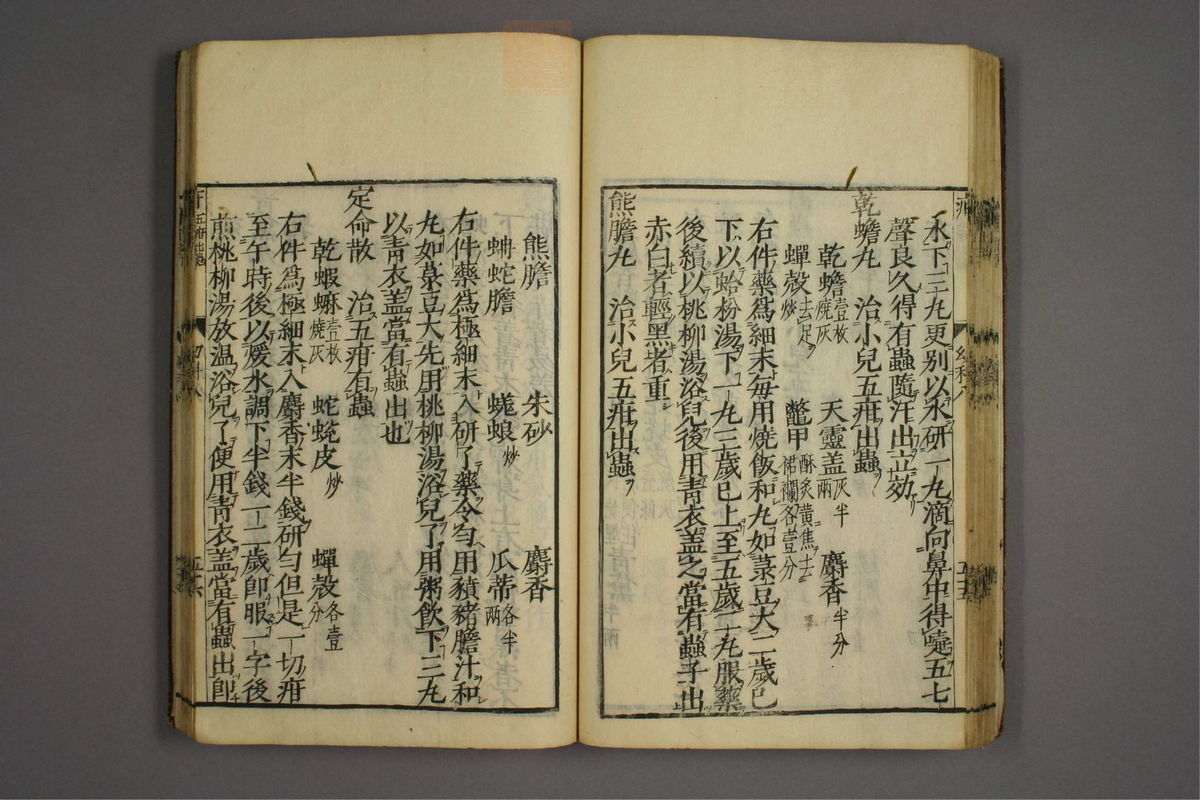 水下三丸更别以水研一丸滴向鼻中得嚏五七
聲良久得有蟲隨汗出立効
乾蟾丸　治小兒五疳出蟲
乾蟾壹枚燒灰　天靈盖灰半兩　麝香半分
蟬殼去足炒　鼈甲酥炙黄焦去裙襴各壹分
右件藥爲細末毎用燒飯和丸如菉豆大二歲已
下以蛤粉湯下一丸三歲已上至五歲二丸服藥
後續以桃柳湯浴兒後用青衣盖之當有蟲子出
赤白者輕黑者重
熊膽丸　治小兒五疳出蟲
熊膽　朱砂　麝香
蚺蛇膽　蜣蜋炒　瓜蒂各半兩
右件藥爲極細末入研了藥令勻用豶猪膽汁和
丸如菉豆大先用桃柳湯浴兒了用粥飲下三丸
以青衣盖當有蟲出也
定命散　治五疳有蟲
乾蝦蟆壹枚燒灰　蛇蛻皮炒　蟬殼各壹分
右件爲極細末入麝香末半錢研勻但是一切疳
至午時後以煖水調下半錢一二歲即服一字後
煎桃柳湯放温浴兒了便用青衣盖當有蟲出即